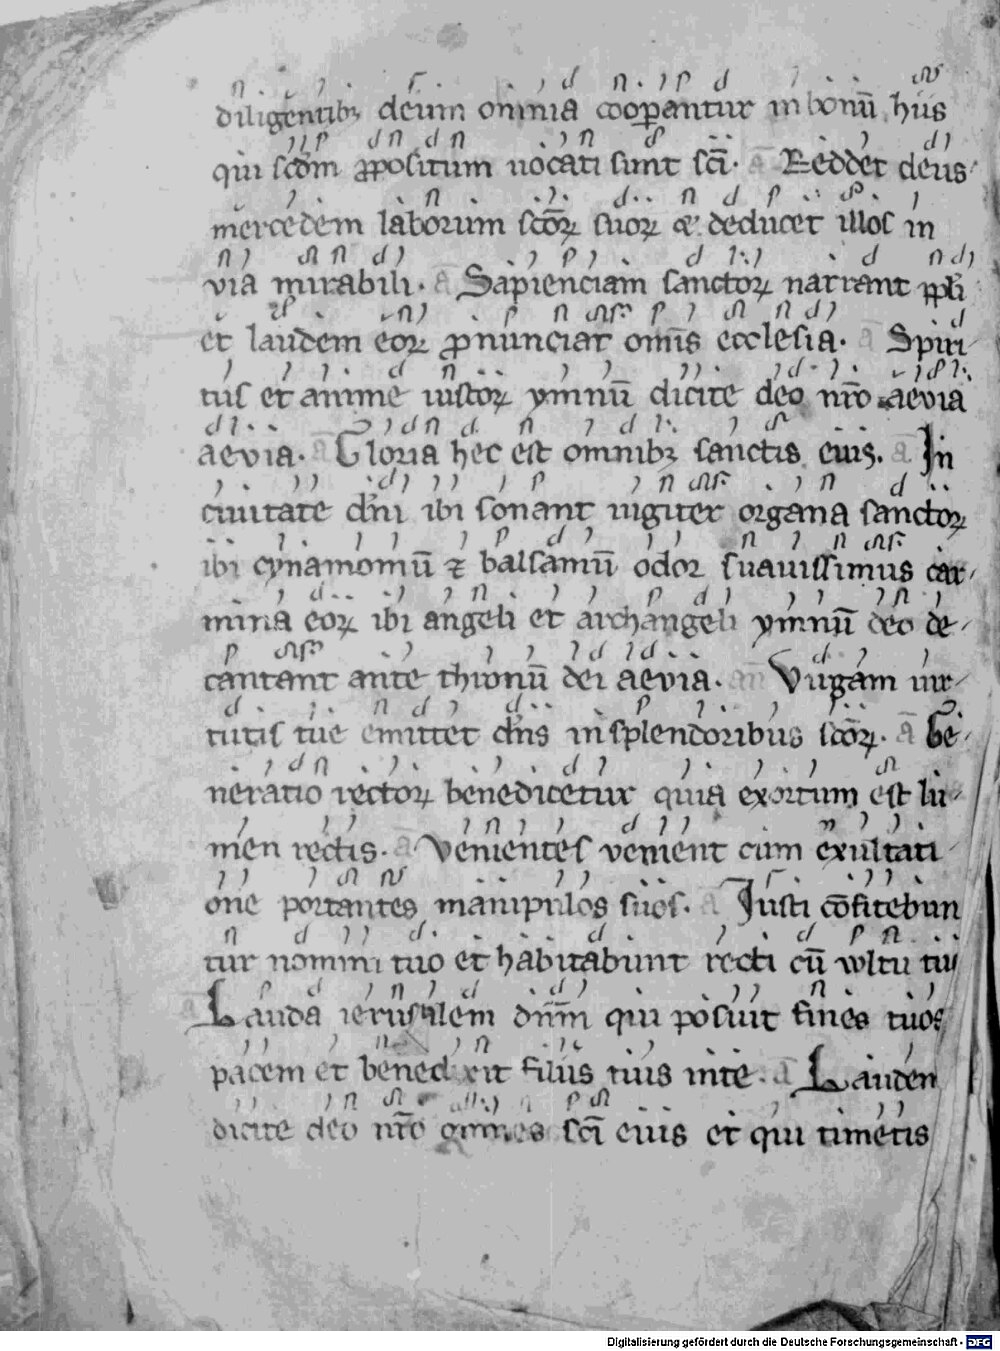 diligentibꝫ deum omnia cooꝑantur in bonū hiis
qui scdm ꝓpositum uocati sunt sc̄i. a̅ Reddet deus
mercedem laborum sc̄oꝝ suoꝝ & deducet illos in
via mirabili. a̅ Sapienciam sanctoꝝ narrant ppl̄i
et laudem eoꝝ ꝓnunciat omīs ecclesia. a̅ Spiri
tus et anime iustoꝝ ymnū dicite deo nr̄o aevia
aevia. a̅ Gloria hec est omnibꝫ sanctis eius. a̅ In
ciuitate dn̄i ibi sonant iugiter organa sanctoꝝ
ibi cynamomū ⁊ balsamū odor suauissimus car
mina eoꝝ ibi angeli et archangeli ymnū deo de
cantant ante thronū dei aevia. an̄ Virgam uir
tutis tue emittet dn̄s in splendoribus sc̄oꝝ. a̅ Ge
neratio rectoꝝ benedicetur quia exortum est lu
men rectis. a̅ Venientes venient cum exultati
one portantes manipulos suos. a̅ Iusti cōfitebun
tur nomini tuo et habitabunt recti cū vultu tuo
a̅ Lauda ierusalem dn̄m qui posuit fines tuos
pacem et benedixit filiis tuis in te. a̅ Lauden
dicite deo nr̄o omnes sc̄i eius et qui timetis
Digitalisierung gefördert durch die Deutsche Forschungsgemeinschaft - DFG